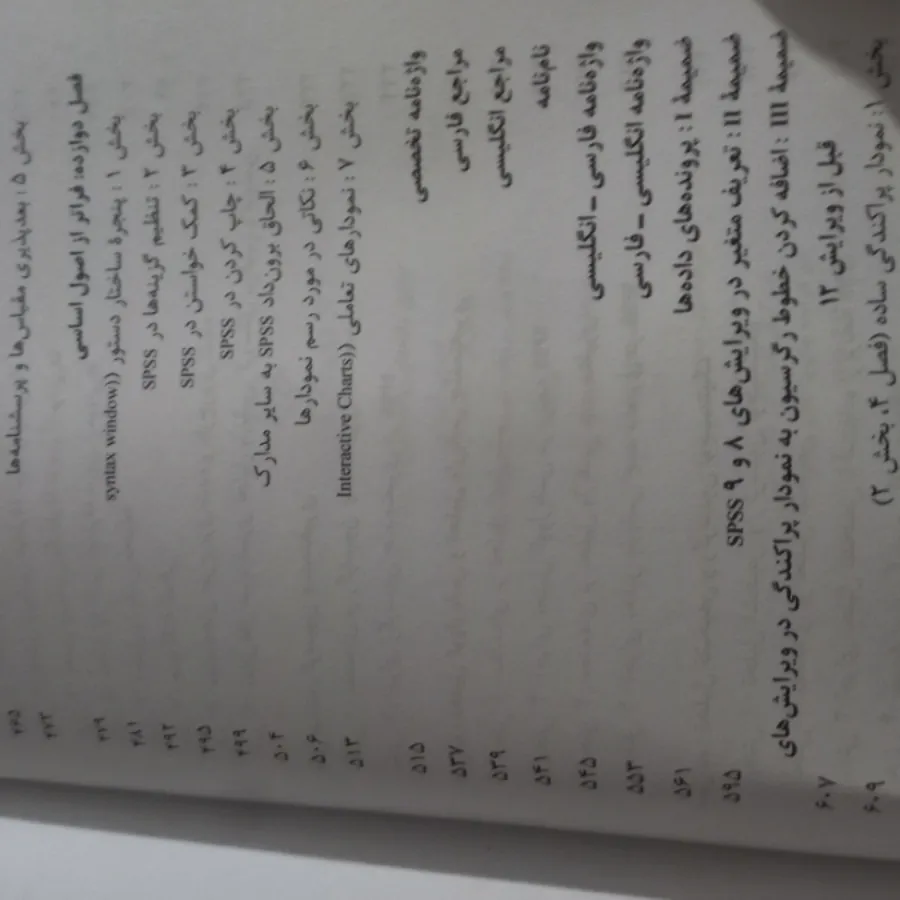 ۴۶۵
بخش ۵ : بعدپذیری مقیاس‌ها و پرسشنامه‌ها ۴۷۳
فصل دوازده: فراتر از اصول اساسی ۴۷۹
بخش ۱ : پنجرهٔ ساختار دستور ((syntax window ۴۸۱
بخش ۲ : تنظیم گزینه‌ها در SPSS ۴۹۲
بخش ۳ : کمک خواستن در SPSS ۴۹۵
بخش ۴ : چاپ کردن در SPSS ۴۹۹
بخش ۵ : الحاق برون‌داد SPSS به سایر مدارک ۵۰۴
بخش ۶ : نکاتی در مورد رسم نمودارها ۵۰۶
بخش ۷ : نمودارهای تعاملی ((Interactive Charts ۵۱۳
واژه‌نامه تخصصی ۵۱۵
مراجع فارسی ۵۳۷
مراجع انگلیسی ۵۳۹
نام‌نامه ۵۴۱
واژه‌نامه فارسی – انگلیسی ۵۴۵
واژه‌نامه انگلیسی – فارسی ۵۵۳
ضمیمهٔ I : پرونده‌های داده‌ها ۵۶۱
ضمیمهٔ II : تعریف متغیر در ویرایش‌های ۸ و ۹ SPSS ۵۹۵
ضمیمهٔ III : اضافه کردن خطوط رگرسیون به نمودار پراکندگی در ویرایش‌های
قبل از ویرایش ۱۲ ۶۰۷
بخش ۱: نمودار پراکندگی ساده (فصل ۴، بخش ۲) ۶۰۹